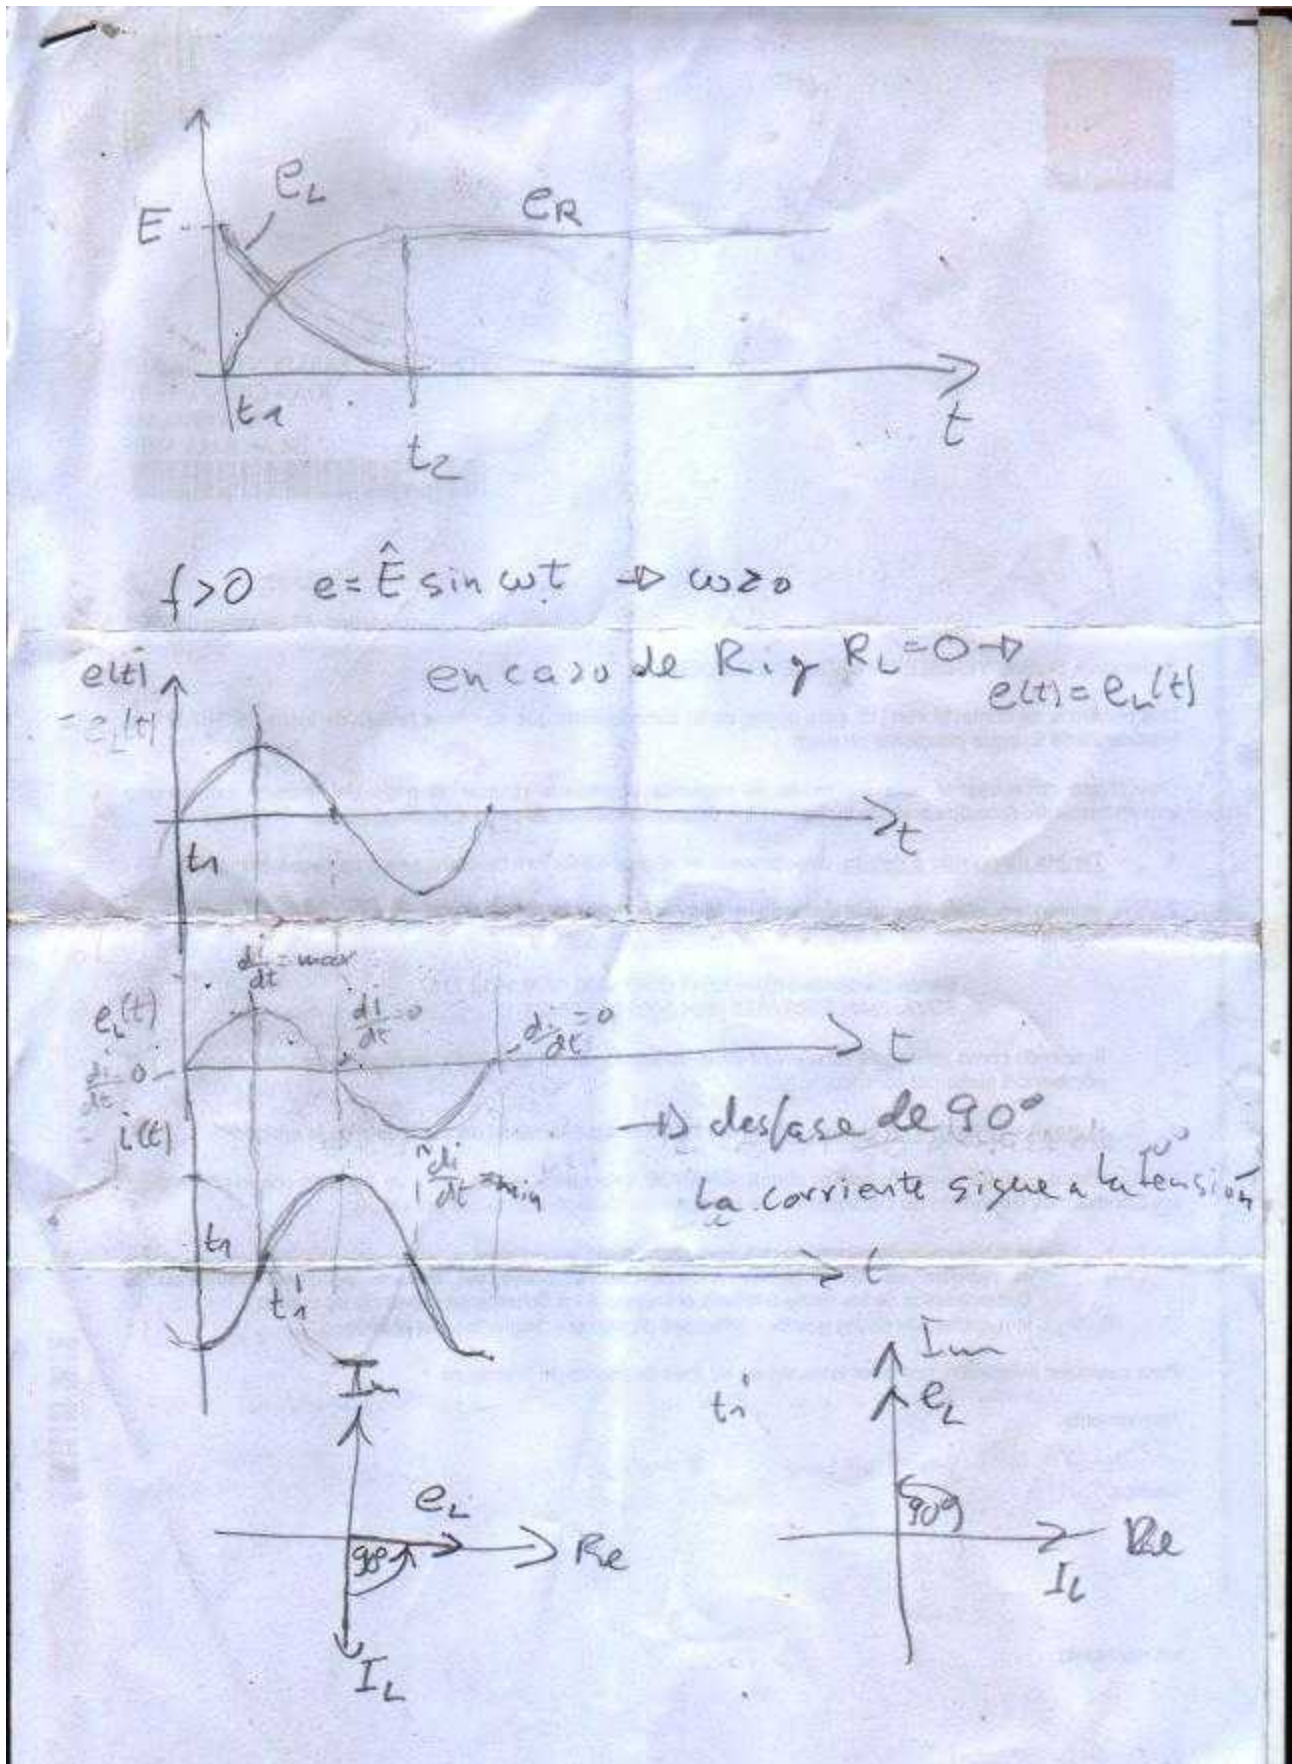 E
e_L
e_R
t_1
t_2
t
f>0 e=Ê sin ωt → ω≥0
en caso de R_i y R_L=0 →
e(t) = e_L(t)
e(t)
= e_L(t)
t_1
t
di/dt = max
e_L(t)
di/dt=0
di/dt=0
di/dt=0
t
i(t)
→ desfase de 90°
di/dt = min
La corriente sigue a la tensión
t_1
t_1'
t
Im
e_L
90°
Re
I_L
t_1'
Im
e_L
90°
Re
I_L